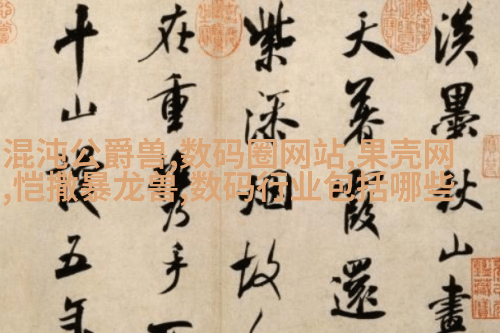 淡墨秋山畫
天暮霞還
紫添烟故
在重攜手
平山謾五年
混沌公爵兽,数码圈网站,果壳网
,恺撒暴龙兽,数码行业包括哪些